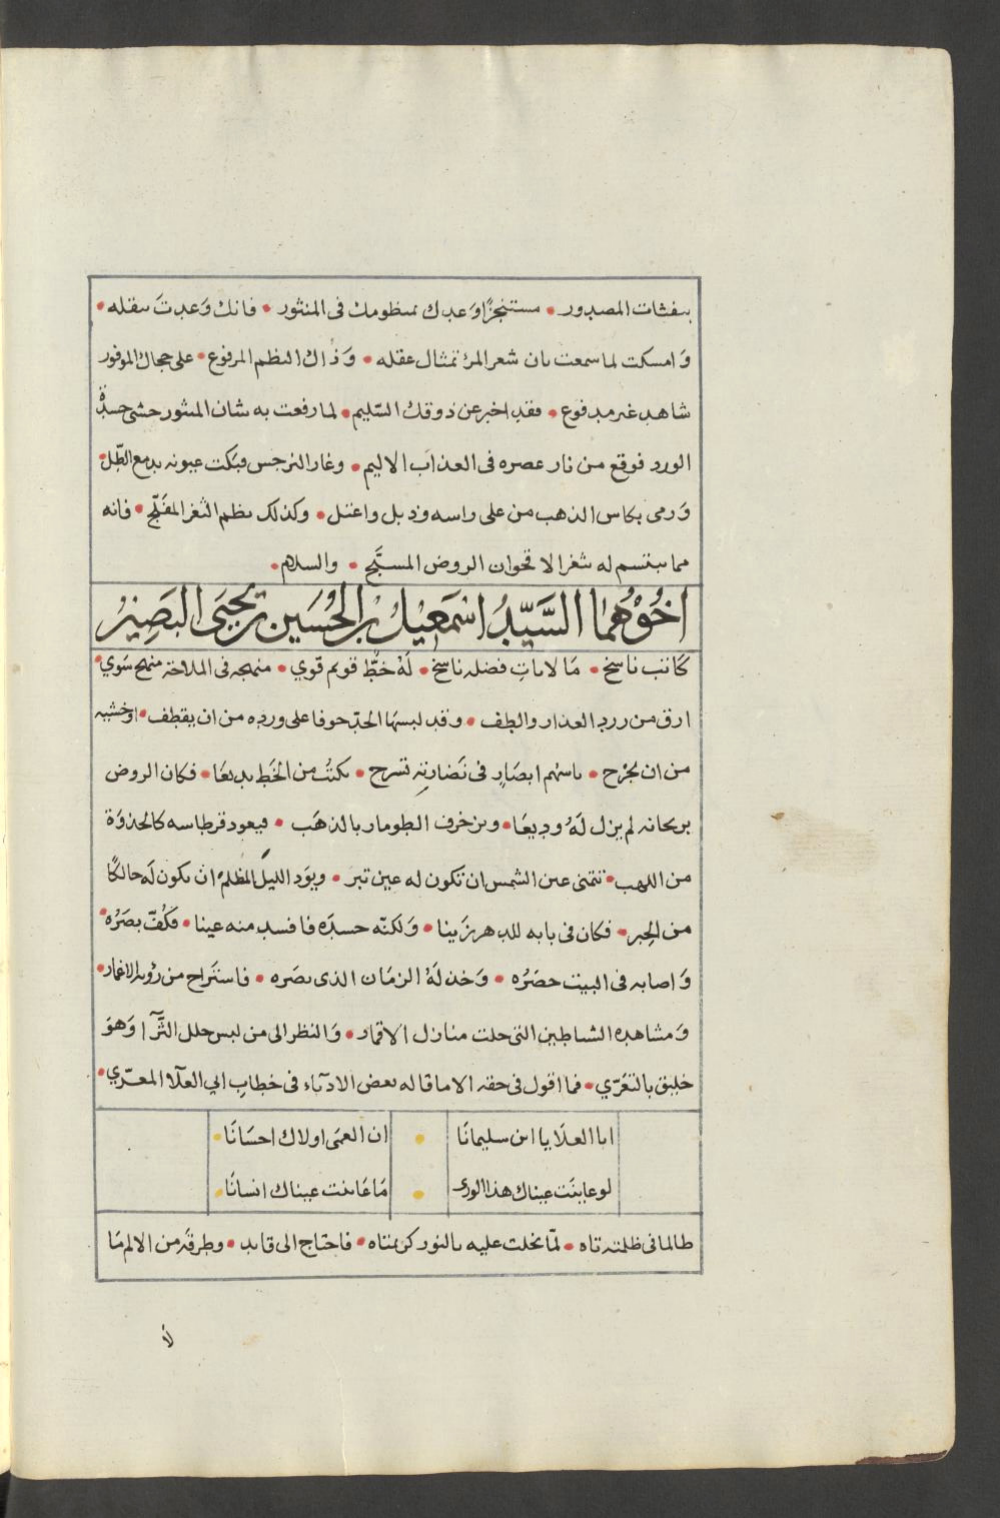 بنفثات المصدور • مستنجزًا وَعدك بمنظومك فى المنثور • فانك وَعدتَ بنقله •
وَامسكت لما سمعت بان شعر المرء تمثال عقله • وَذاك النظم المرفوع • على حجاك الموفور
شاهد غير مدفوع • فقد اخبر عن ذوقك السّليم • لما رفعت به شان المنثور حتى حسدهُ
الورد فوقع من نار عصره فى العذاب الاليم • وغار النرجس فبكت عيونه بدمع الطّل •
وَرمى بكاس الذهب من على راسه وذبل واعتل • وكذلك نظم الثغر المفلّج • فانه
مما يبتسم له ثغر الاقحوان الروض المسبَّج • والسلام •
اخُوْهُمَا السَّيّدُ اسْمَعِيْلُ بْنُ الحُسَيْن بْن يَحْيَى البَصِيْرُ
كَاتب ناسخ • مَا لاياتِ فضله ناسخ • لهُ خطٌّ قويم قوي • منهجه فى الملاحة منهج سَوي •
ارق من زرد العذار والطف • وقد لبسهَا الخدّ خوفا على ورده من ان يقطف • اوخشيه
من ان يجْرح • باسهُم ابصَارٍ فى نَضارتِه تسرح • يكتُب من الخَط بديعَا • فكان الروض
بريحانه لم يزل لَهُ وديعَا • ويزخرف الطومار بالذهَب • فيعود قرطاسه كالجذوَة
من اللهب • تتمنى عين الشمس ان تكون له عين تبر • ويوَد الليلُ المظلم ان يكون لَه حالكًا
من الحِبر • فكان فى بابه للدهر زَينا • وَلكنّه حسدَه فافسد منه عينا • فكُفّ بصَرُه •
وَاصابه فى البيت حصَرُه • وَخذ لهُ الزمَان الذى نصَره • فاستَراح من رؤية الاغمار •
وَمشاهده الشياطين التى حلت منازل الاقمار • وَالنظر الى من لبس حلل الثَّرآ وَهوَ
خليق بالتعَرّي • فما اقول فى حقه الا ما قاله بعض الادبآء فى خطابِ ابي العلآ المعَرّي •
ابا العلَا يا ابن سليمانَا • ان العمَى اولاك احسَانَا •
لو عاينَت عيناك هذا الورى • مَا عَاينت عيناك انسانَا •
طالما فى ظلمته تاه • لمّا بخلت عليه بالنور كريمتاه • فاحتاج الى قايد • وطرقَه من الالم مَا
لا